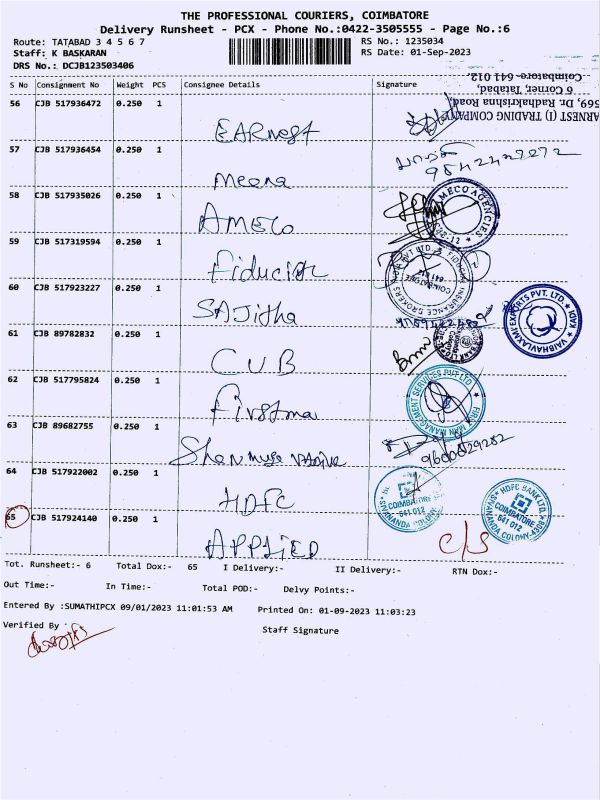 THE PROFESSIONAL COURIERS, COIMBATORE
Delivery Runsheet - PCX - Phone No.:0422-3505555 - Page No.:6
Route: TATABAD 3 4 5 6 7 RS No.: 1235034
Staff: K BASKARAN RS Date: 01-Sep-2023
DRS No.: DCJB123503406
S No Consignment No Weight PCS Consignee Details Signature
ARNEST (I) TRADING COMPANY
569, Dr. Radhakrishna Road,
6 Corner, Tatabad,
Coimbatore- 641 012.
56 CJB 517936472 0.250 1
EARnest
57 CJB 517936454 0.250 1
Meena
58 CJB 517935026 0.250 1
AMECO AGENCIES
AMECO
59 CJB 517319594 0.250 1
Fiducia
FIDUCIA INSURANCE BROKERS INDIA PVT LTD
COIMBATORE
641 012
60 CJB 517923227 0.250 1
SAJitha
VAIBHAVLAXMI EXPORTS PVT. LTD. KADI
61 CJB 89782832 0.250 1
CUB
62 CJB 517795824 0.250 1
Firstma
FIRST MAN MANAGEMENT SERVICES PVT LTD
63 CJB 89682755 0.250 1
9600029282
64 CJB 517922002 0.250 1
HDFC
COIMBATORE
641 012
SIVANANDA COLONY
HDFC BANK LTD.
COIMBATORE
641 012
SIVANANDA COLONY-4808
65 CJB 517924140 0.250 1
APPLIED
C/S
Tot. Runsheet:- 6 Total Dox:- 65 I Delivery:- II Delivery:- RTN Dox:-
Out Time:- In Time:- Total POD:- Delvy Points:-
Entered By :SUMATHIPCX 09/01/2023 11:01:53 AM Printed On: 01-09-2023 11:03:23
Verified By :
Staff Signature